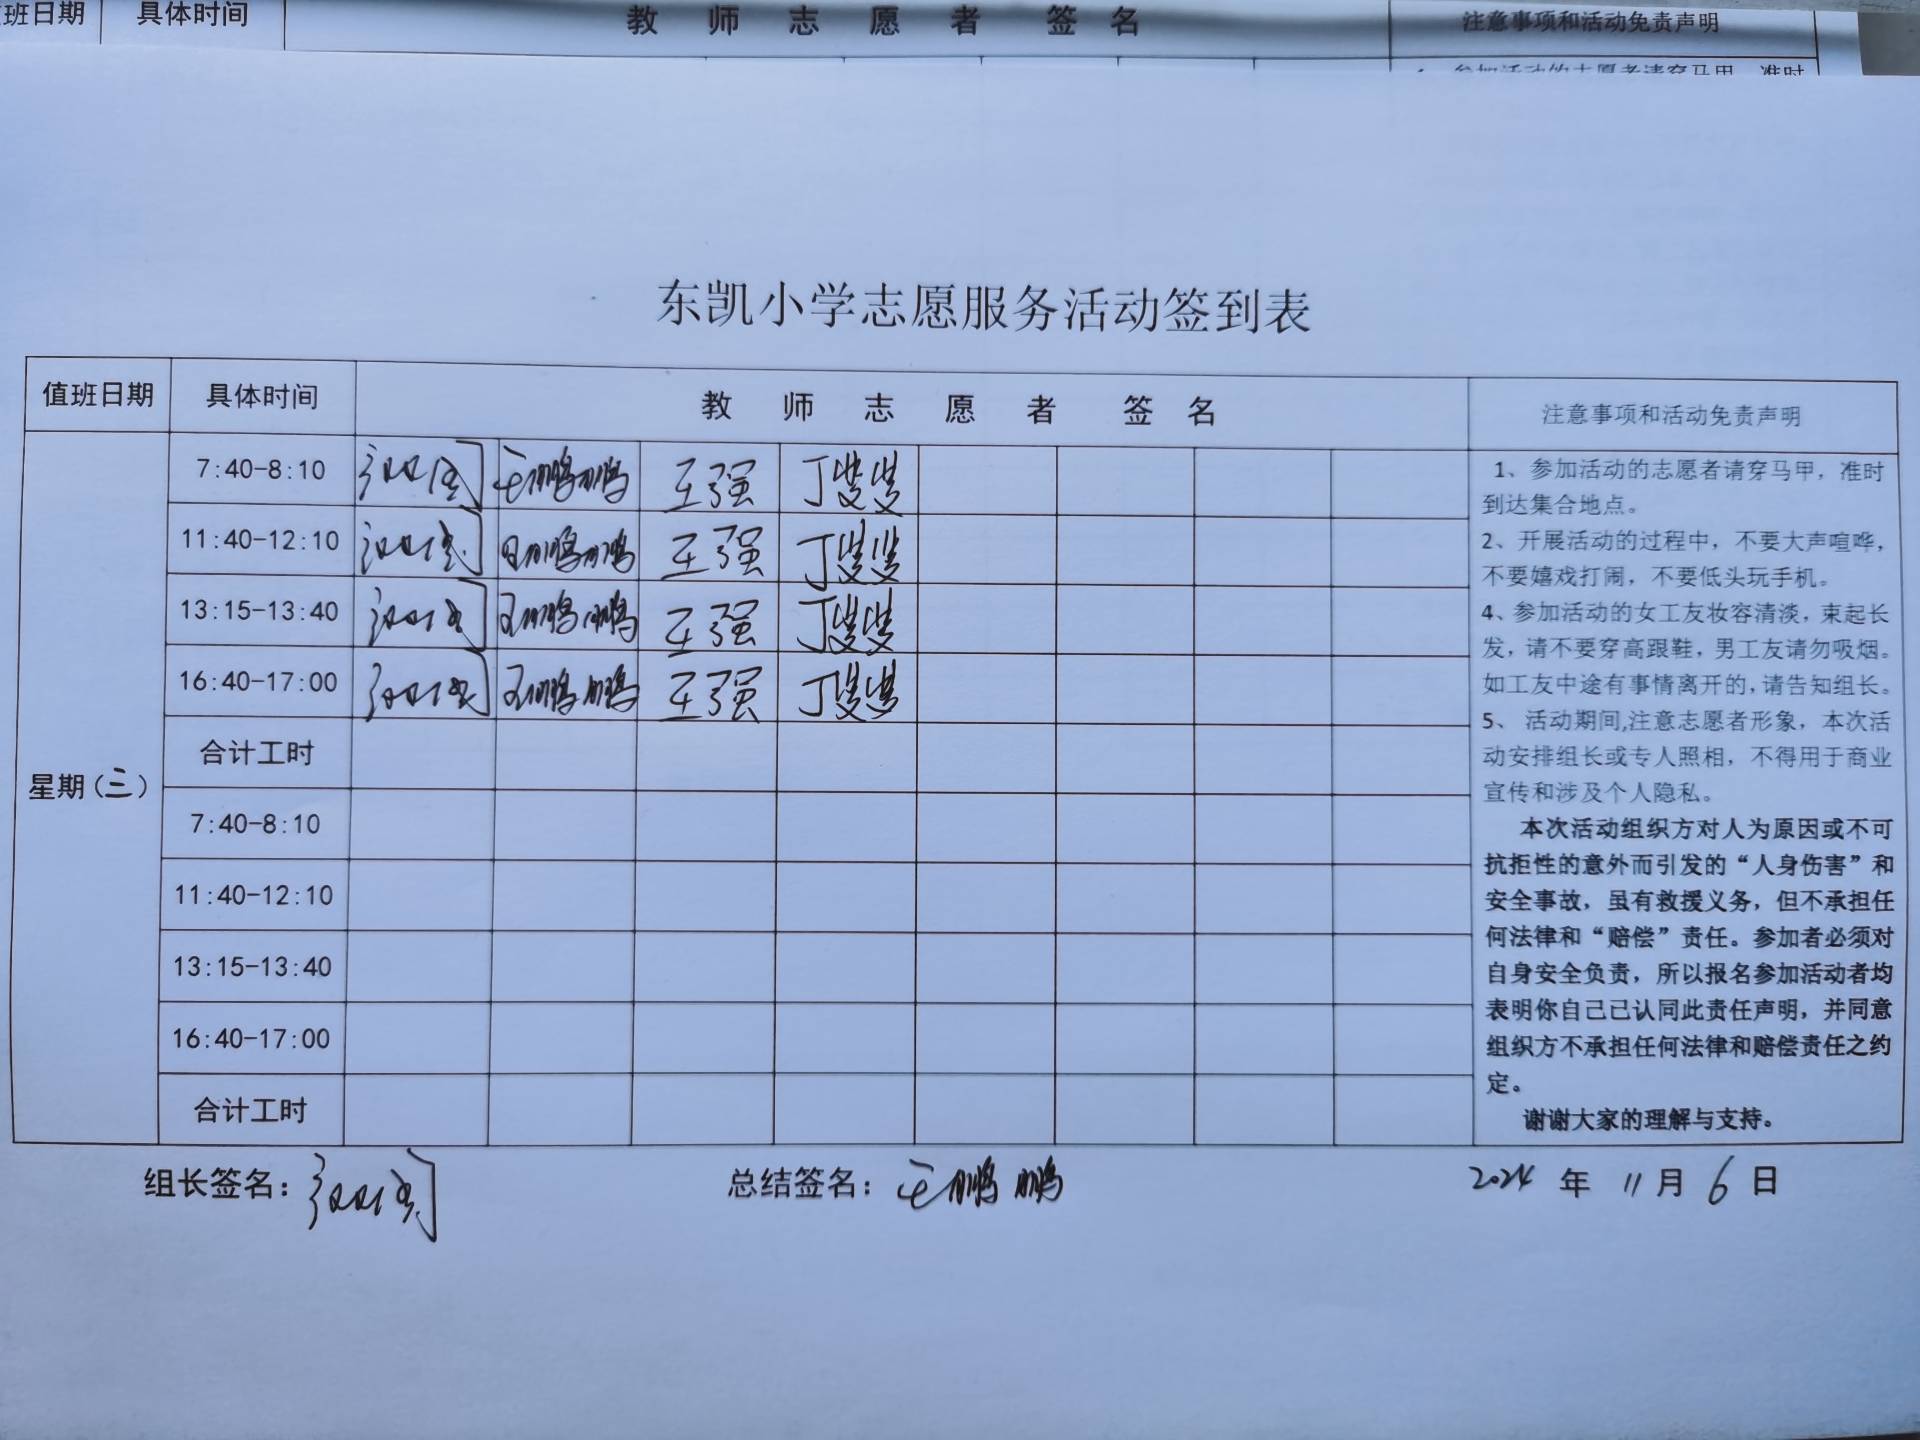 班日期 具体时间 教师志愿者 签名 注意事项和活动免责声明
东凯小学志愿服务活动签到表
值班日期 具体时间 教师志愿者 签名 注意事项和活动免责声明
星期(三)
7:40-8:10 王鹏鹏 王强 丁叟叟
11:40-12:10 王鹏鹏 王强
13:15-13:40 王鹏鹏 王强
16:40-17:00 王鹏鹏 王强
合计工时
7:40-8:10
11:40-12:10
13:15-13:40
16:40-17:00
合计工时
1、参加活动的志愿者请穿马甲，准时
到达集合地点。
2、开展活动的过程中，不要大声喧哗，
不要嬉戏打闹，不要低头玩手机。
4、参加活动的女工友妆容清淡，束起长
发，请不要穿高跟鞋，男工友请勿吸烟。
如工友中途有事情离开的，请告知组长。
5、 活动期间,注意志愿者形象，本次活
动安排组长或专人照相，不得用于商业
宣传和涉及个人隐私。
本次活动组织方对人为原因或不可
抗拒性的意外而引发的“人身伤害”和
安全事故，虽有救援义务，但不承担任
何法律和“赔偿”责任。参加者必须对
自身安全负责，所以报名参加活动者均
表明你自己已认同此责任声明，并同意
组织方不承担任何法律和赔偿责任之约
定。
谢谢大家的理解与支持。
组长签名： 总结签名：王鹏鹏 2024 年 11 月 6 日